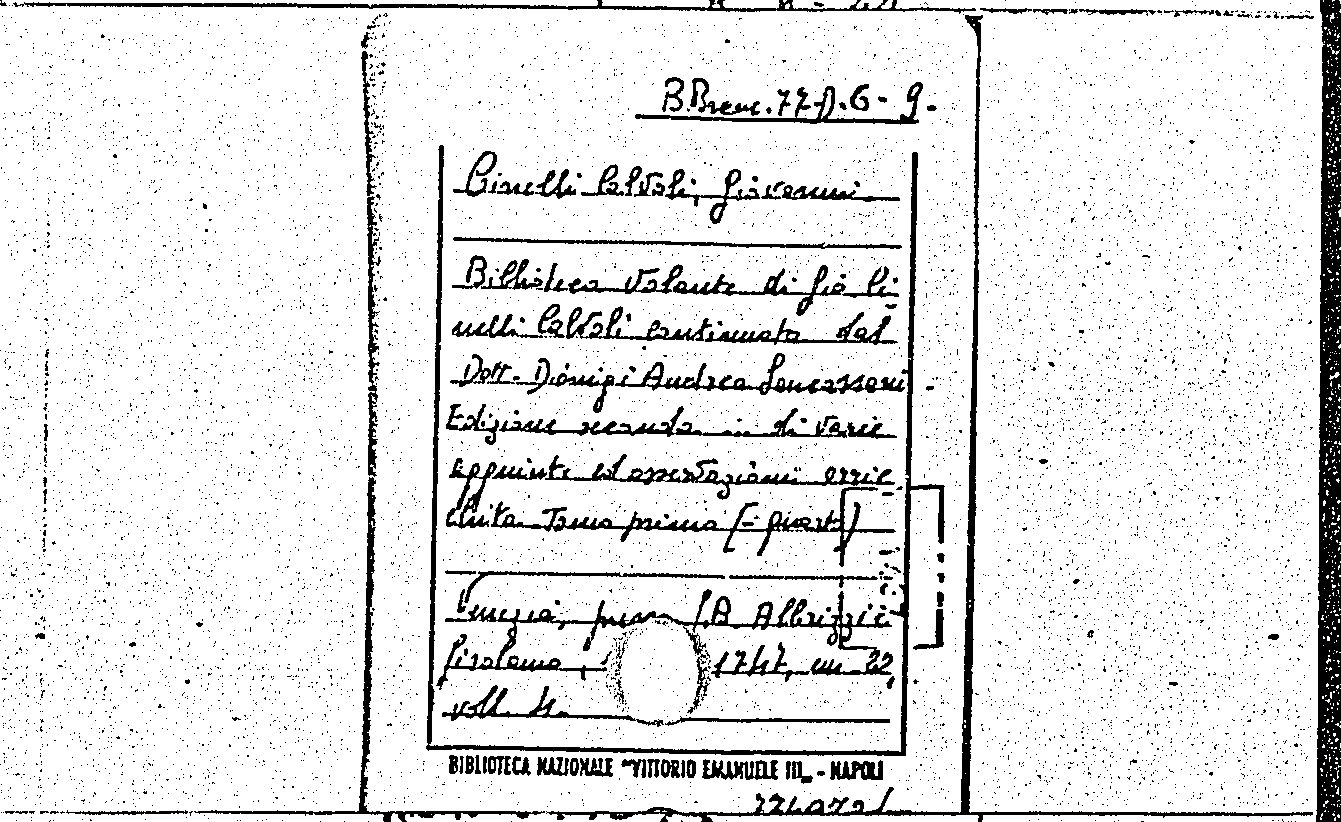 B.Breve.77.D.6-9.
Cinelli Calvoli, Giovanni
Biblioteca Volante di Gio Ci
nelli Calvoli continuata dal
Dott. Dionigi Andrea Sancassani.
Edizione seconda in di varie
aggiunte ed osservazioni arric
chita Tomo primo (- quarto)
Venezia, presso G.B Albrizzi
Girolamo, 1747, cm 22,
voll. 4.
BIBLIOTECA NAZIONALE "VITTORIO EMANUELE III„ - NAPOLI